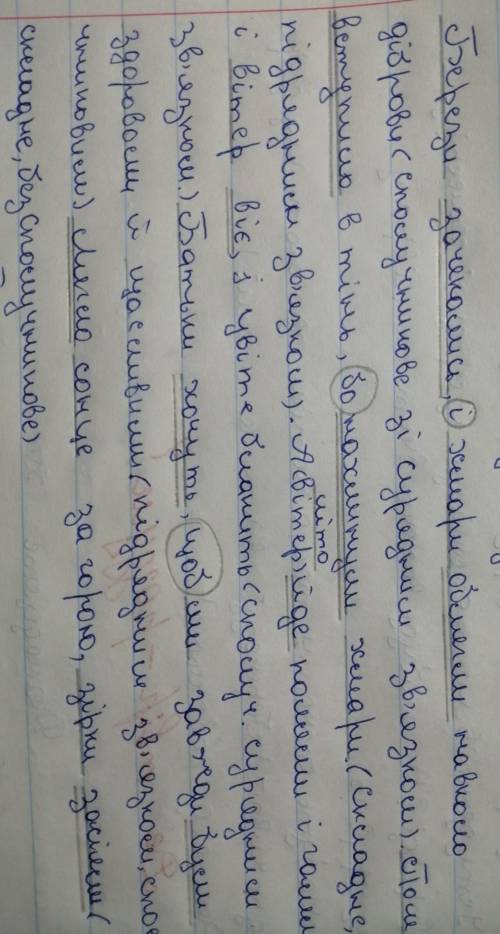 Берези зачекались, і хмари облягли навколо
діброви (сполучникове зі сурядним зв'язком). Поле
вступило в тінь, бо нахлинули хмари. (складне,
підрядним зв'язком). А (вітер) літо йде полями і гаями
і вітер віє, і цвіте блакить (сполуч. сурядним
зв'язком.) Батьки хочуть, щоб ми завжди були
здоровими й щасливими (підрядним зв'язком, спо
чниковим) Лягло сонце за горою, зірки засіяли (
складне, безсполучникове)